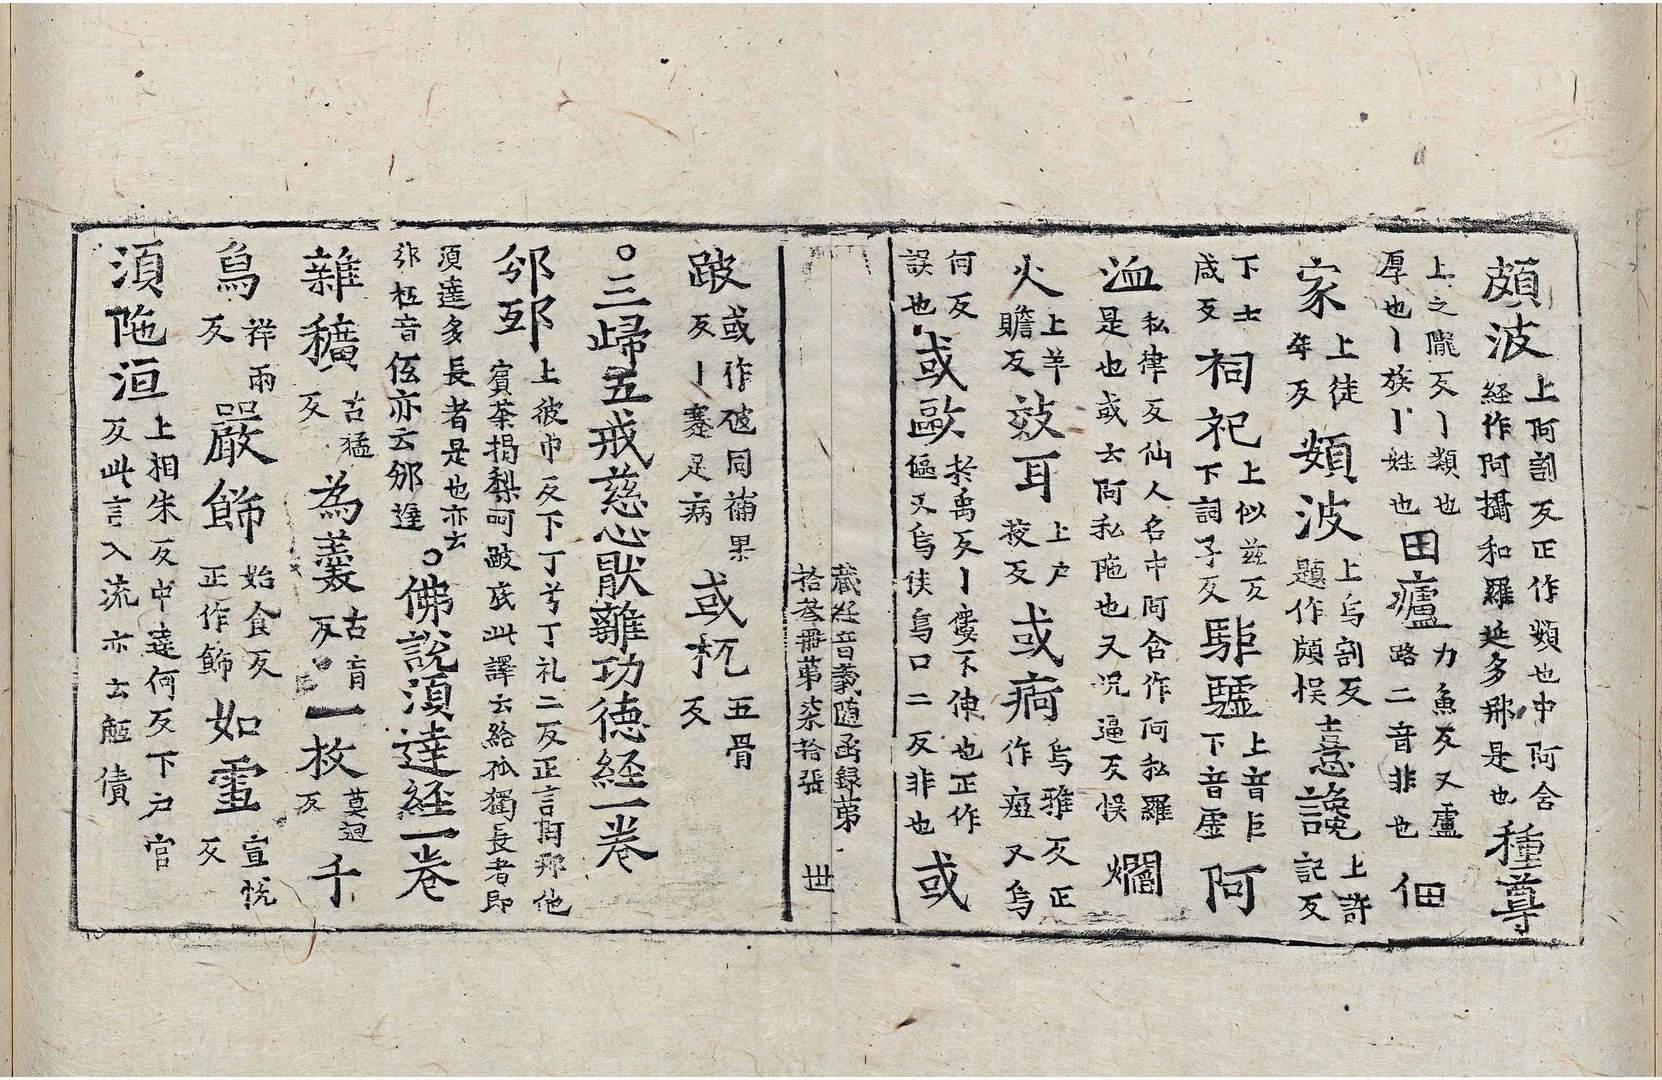 頗波上阿割反正作頞也中阿舍經作阿攝和羅延多那是也種尊
上之隴反丨類也厚也丨族丨姓也田廬力魚反又盧路二音非也佃
家上徒年反頞波上烏割反題作頗悮憙譺上許記反
下士咸反祠祀上似兹反下詞子反駏驉上音巨下音虛阿
洫私律反仙人名中阿含作阿私羅是也或云阿私陁也又况逼反悮爓
火上羊贍反㪣耳上户茭反或痾烏雅反正作瘂又烏
何反誤也或歐於禹反丨僂不伸也正作傴又烏侯烏口二反非也或
藏經音義随函録第拾叁冊第柒拾張 世
跛或作破同補果反丨蹇足病或杌五骨反
○三歸五戒慈心猒離功德経一卷
邠邳上彼巾反下丁兮丁礼二反正言阿那他賓荼揭梨呵跛底此譯云給孤獨長者即
須達多長者是也亦云邠柢音伭亦云邠達○佛說須達経一卷
雜穬古猛反為羹古肓反一枚莫迴反千
鳥祥雨反嚴飾始食反正作飾如雪宣恱反
湏陁洹上相朱反中達何反下户官反此言入流亦云觝債